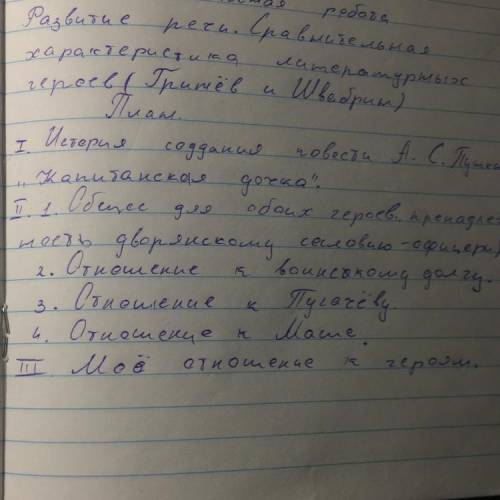 работа
Развитие речи. Сравнительная
характеристика литературных
героев (Гринёв и Швабрин)
План.
I. История создания повести А. С. Пушки
"Капитанская дочка".
II. 1. Общее для обоих героев: принадле-
ность дворянскому сословию - офицеры)
2. Отношение к воинскому долгу.
3. Отношение к Пугачёву.
4. Отношение к Маше.
III Моё отношение к героям.